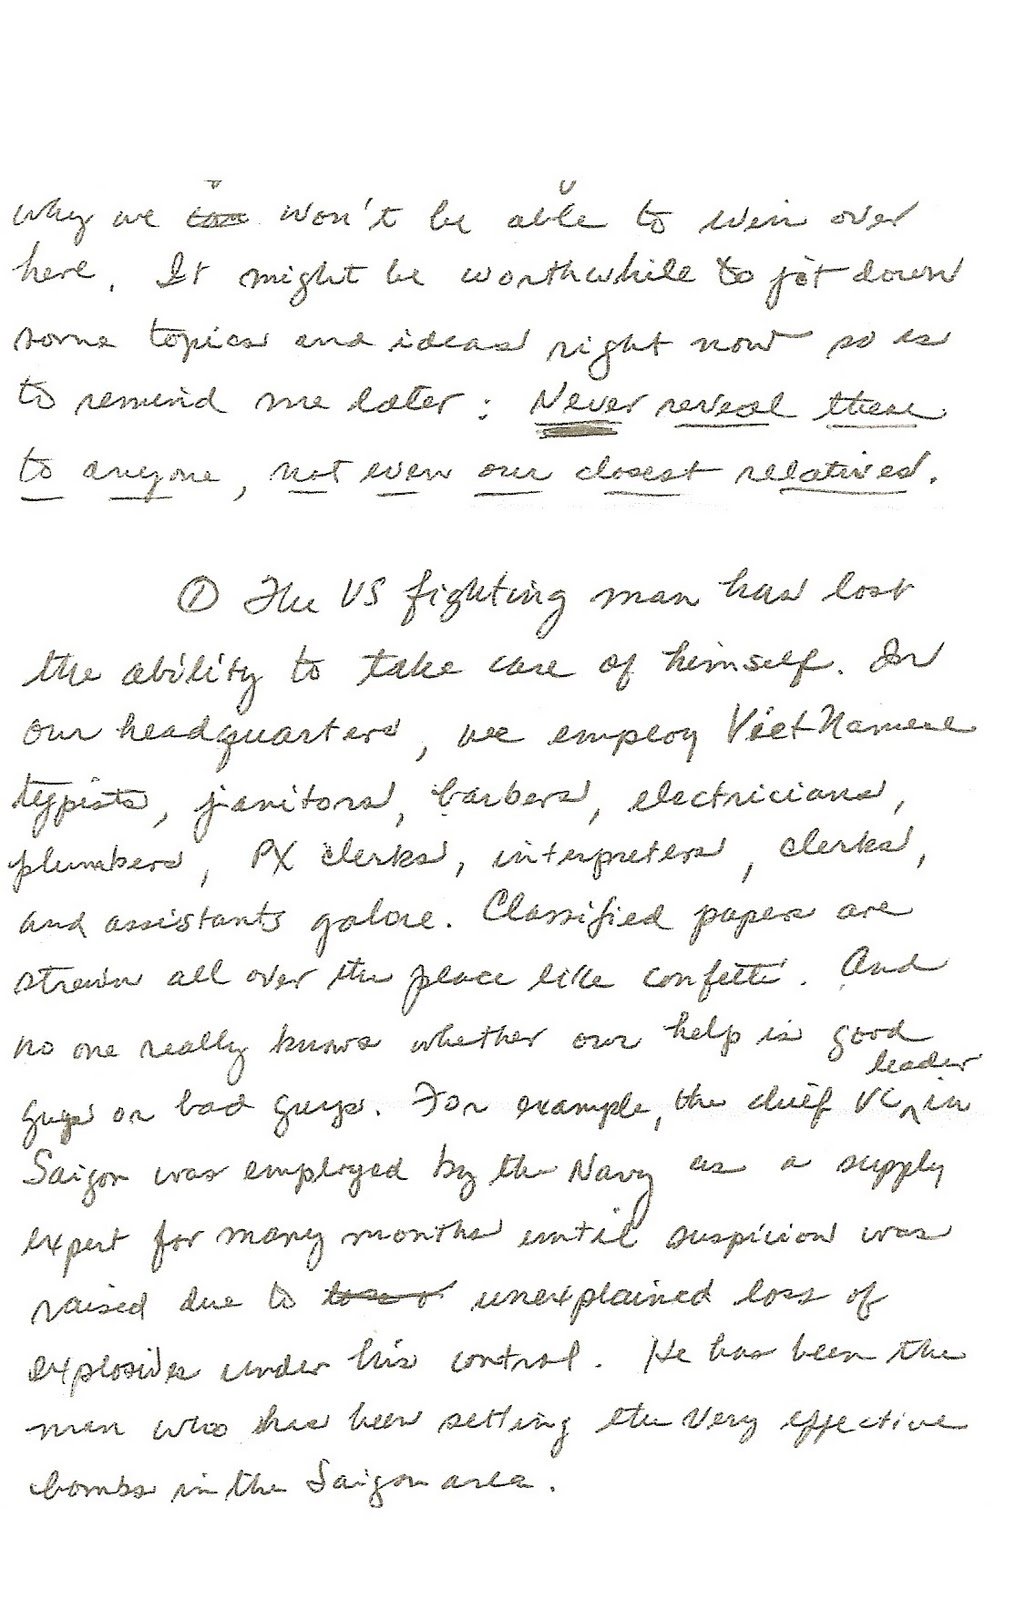 why we won't be able to win over
here. It might be worthwhile to jot down
some topics and ideas right now so as
to remind me later: Never reveal these
to anyone, not even our closest relatives.
① The US fighting man has lost
the ability to take care of himself. In
our headquarters, we employ VietNamese
typists, janitors, barbers, electricians,
plumbers, PX clerks, interpreters, clerks,
and assistants galore. Classified papers are
strewn all over the place like confetti. And
no one really knows whether our help is good
guys or bad guys. For example, the chief VC leader in
Saigon was employed by the Navy as a supply
expert for many months until suspicion was
raised due to unexplained loss of
explosives under his control. He has been the
man who has been setting the very effective
bombs in the Saigon area.